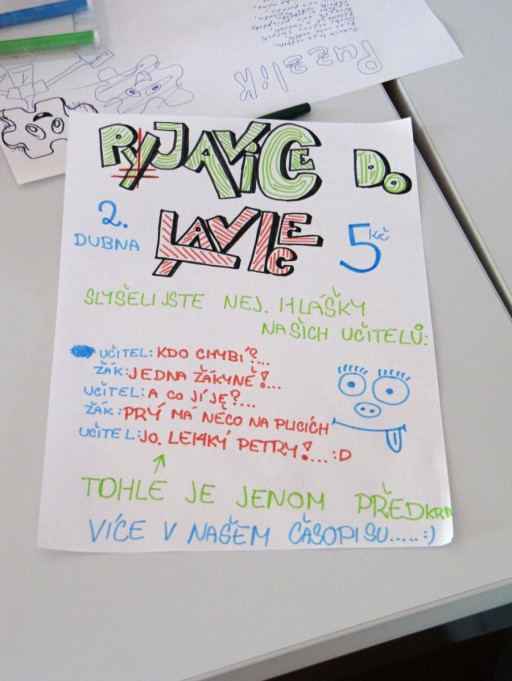 Puzzlík
RYJAVICE DO
LAVICE
2.
DUBNA
5 Kč
SLYŠELI JSTE NEJ. HLÁŠKY
NAŠICH UČITELŮ:
UČITEL: KDO CHYBÍ?...
ŽÁK: JEDNA ŽÁKYNĚ!...
UČITEL: A CO JÍ JE?...
ŽÁK: PRÝ MÁ NĚCO NA PLICÍCH
UČITEL: JO. LEHKÝ PETRY!...:D
TOHLE JE JENOM PŘEDKRM
VÍCE V NAŠEM ČASOPISU.....:)